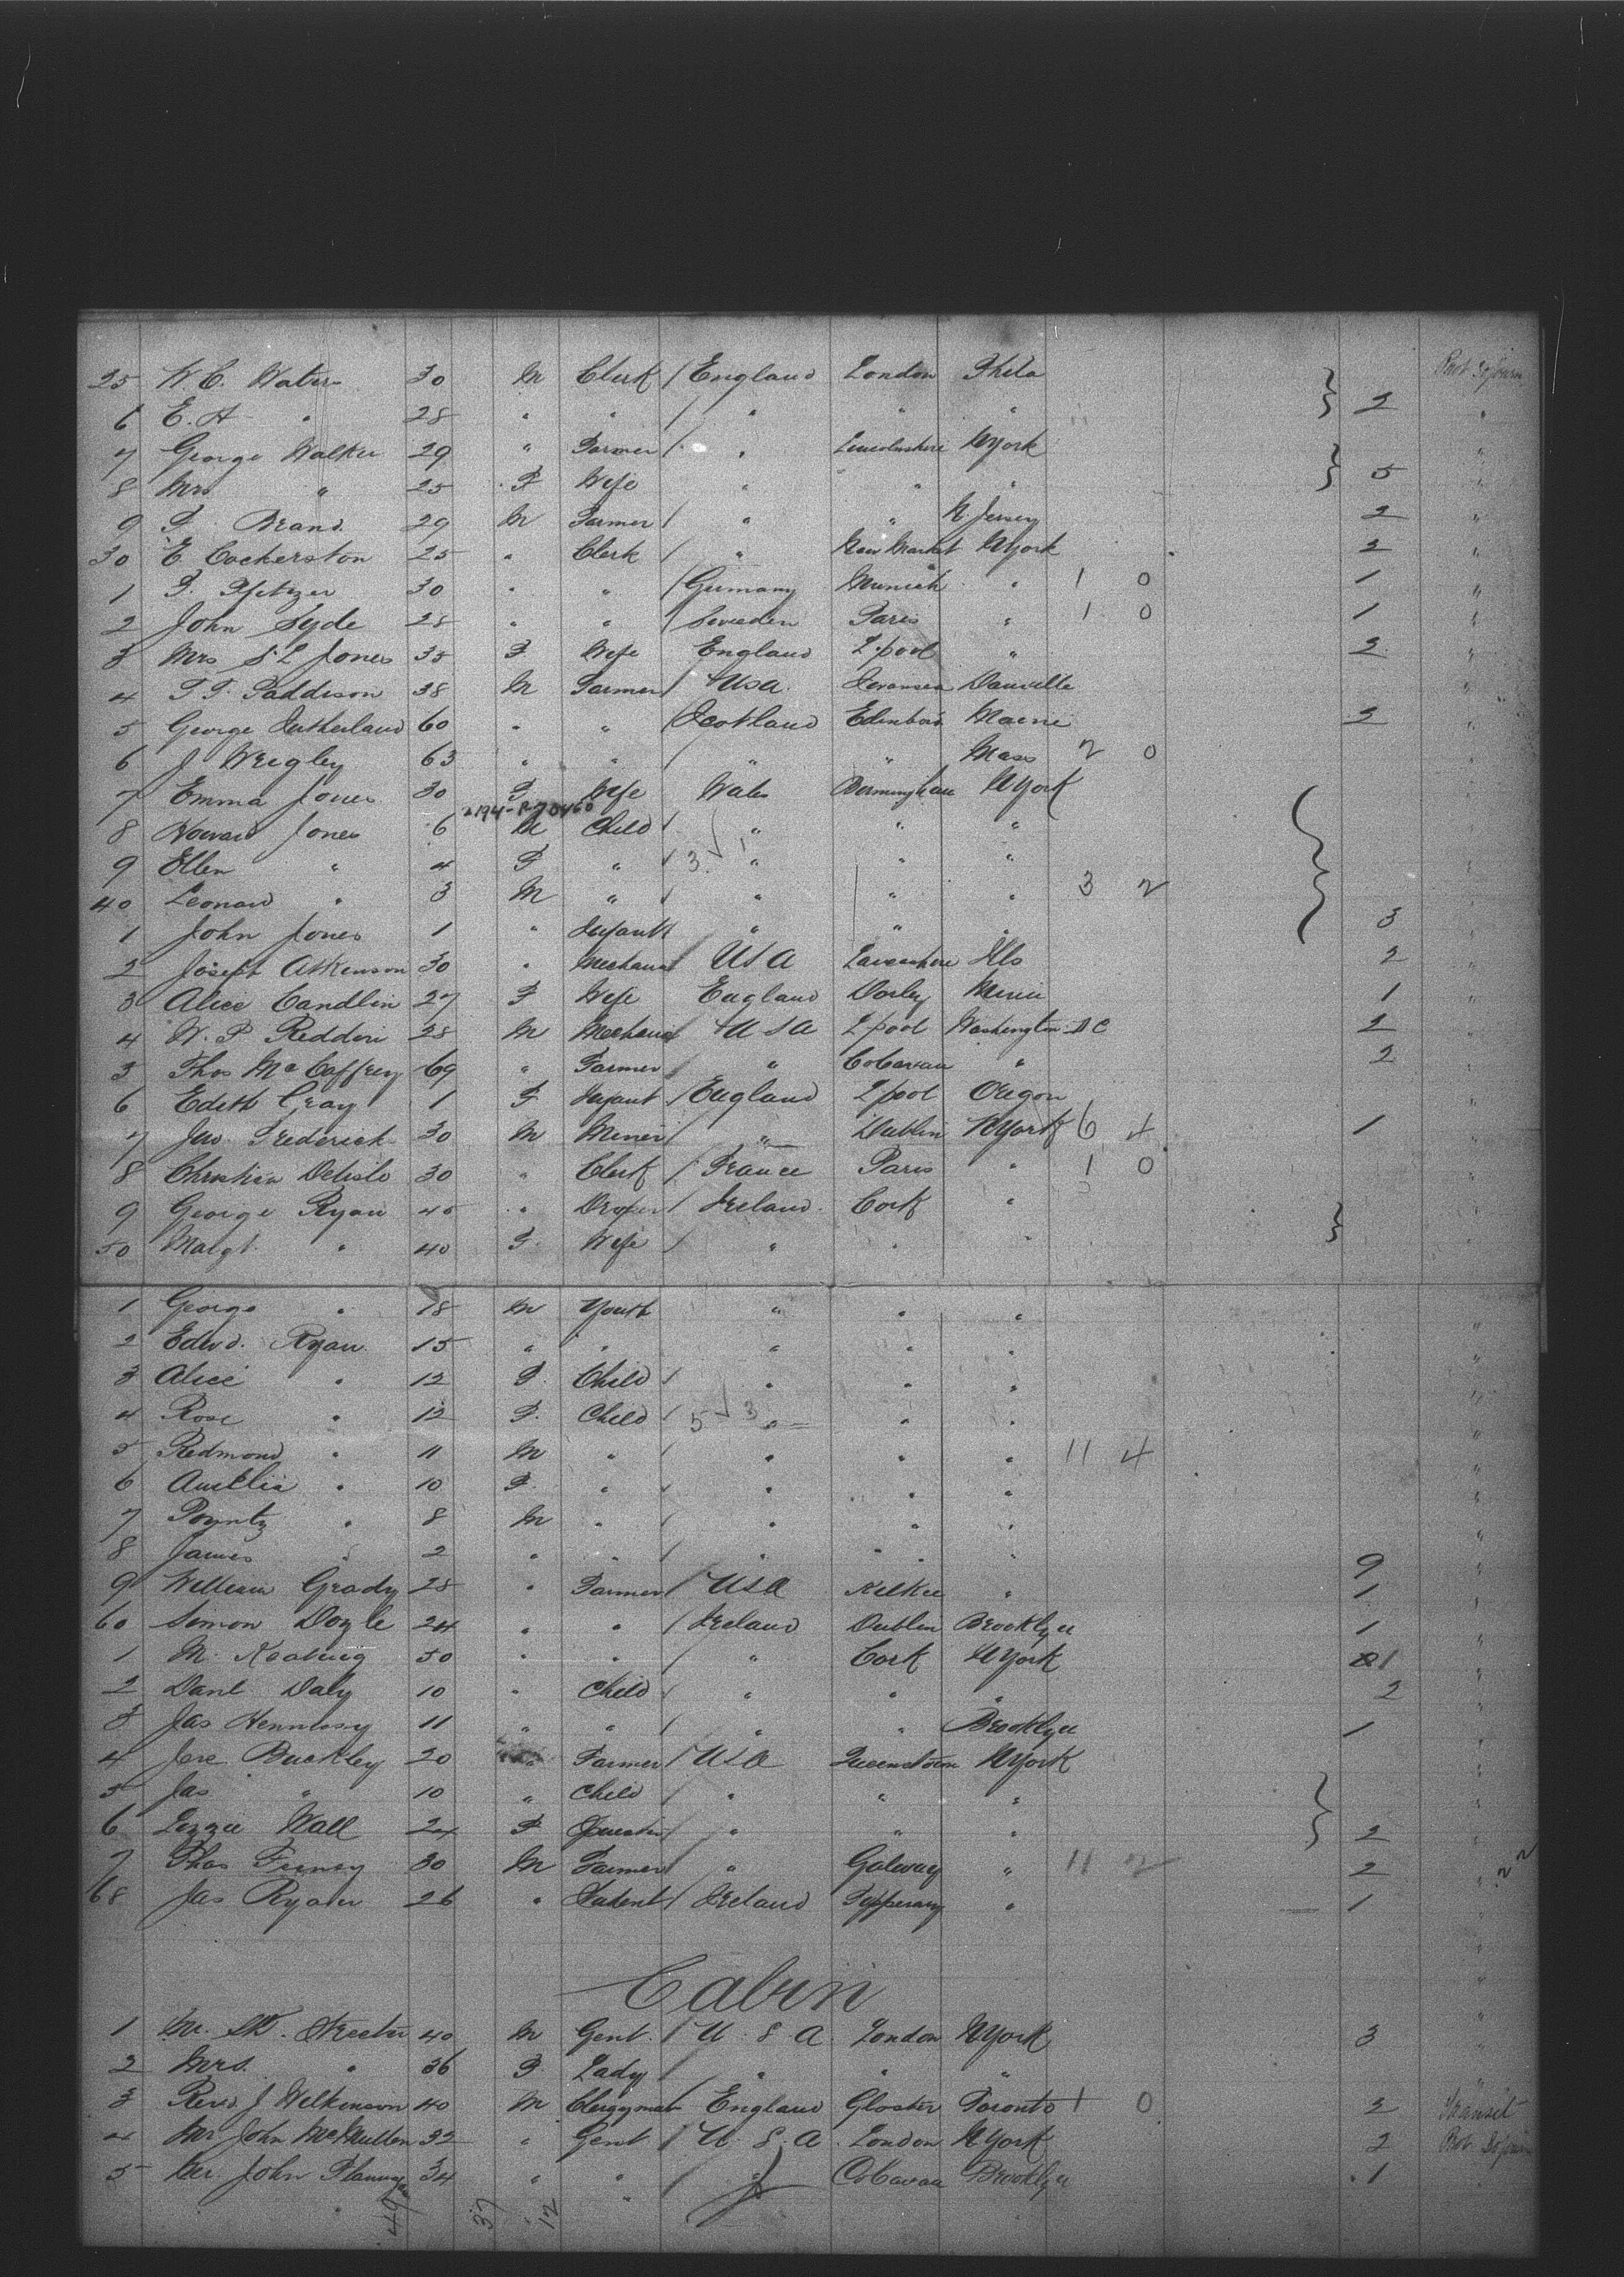 25 W. C. Waters 30 M Clerk / England London Phila 2 Prot Sojourn
6 E. A " 28 " " / " " " "
7 George Walker 29 " Farmer / " Lincolnshire NYork "
8 Mrs " 25 F Wife " " " 5 "
9 F. Brand 29 M Farmer / " " N. Jersey 2 "
30 E Cockerston 25 " Clerk / " New Market NYork 2 "
1 F. Pfitzer 30 " " / Germany Munich " 1 0 1 "
2 John Syde 28 " " / Sweden Paris " 1 0 1 "
3 Mrs S L Jones 35 F Wife England L.pool " 2 "
4 T. T. Paddison 38 M Farmer / USA Swansea Danville "
5 George Sutherland 60 " " / Scotland Edinboro Maine 2 "
6 J Wrigley 63 " " / " " Mass 2 0 "
7 Emma Jones 30 F Wife Wales Birmingham NYork "
2194-P-70460
8 Howard Jones 6 M Child / " " " "
9 Ellen " 4 F " / 3 1 " " " "
40 Leonard " 3 M " / " " " 3 2 "
1 John Jones 1 " Infant / " " " 3 "
2 Joseph Atkinson 30 " Mechanic USA Lancashire Ills 2 "
3 Alice Candlin 27 F Wife England Dorley Minn 1 "
4 W. P Reddin 28 M Mechanic USA L pool Washington DC 2 "
5 Thos McCaffrey 69 " Farmer / " CoCavan " 2 "
6 Edith Gray 1 F Infant / England L pool Oregon "
7 Jno. Frederick 30 M Miner / " Dublin NYork 6 4 1 "
8 Christian Delisle 30 " Clerk / France Paris " 1 0 "
9 George Ryan 45 " Draper / Ireland Cork " "
50 Margt. " 40 F Wife / " " " "
1 George " 18 M Youth " " " "
2 Edwd. Ryan 15 " " " " " "
3 Alice " 12 F Child / " " " "
4 Rose " 12 F. Child / 5 3 " " " "
5 Redmond " 11 M " / " " " 11 4 "
6 Amelia " 10 F " / " " " "
7 Poyntz " 8 M " / " " " "
8 James " 2 " " / " " " 9 "
9 William Grady 28 " Farmer / USA Kilkee " 1 "
60 Simon Doyle 24 " " / Ireland Dublin Brooklyn 1 "
1 M. Keating 50 " " / " Cork NYork 1 "
2 Danl Daly 10 " Child / " " " 2 "
3 Jas Hennessy 11 " " / " " Brooklyn 1 "
4 Jere Buckley 20 " Farmer / USA Queenstown NYork "
5 Jas " 10 " Child / " " " "
6 Lizzie Wall 24 F / " " " 2 "
7 Thos Feeney 30 M Farmer / " Galway " 11 2 2 " 2 2
68 Jas Ryan 26 " Student / Ireland Tipperary " 1 "
Cabin
1 Mr. Streeter 40 M Gent. / U. S A. London NYork 3 "
2 Mrs. " 36 F Lady / " " " "
3 Revd J Wilkinson 40 M Clergyman England Gloster Toronto 1 0 2 Transit
4 Mr John McMullen 32 " Gent / U. S. A. London NYork 2 Prot Sojourn
5 Mr. John 34 " " / " CoCavan Brooklyn 1
49 37 12